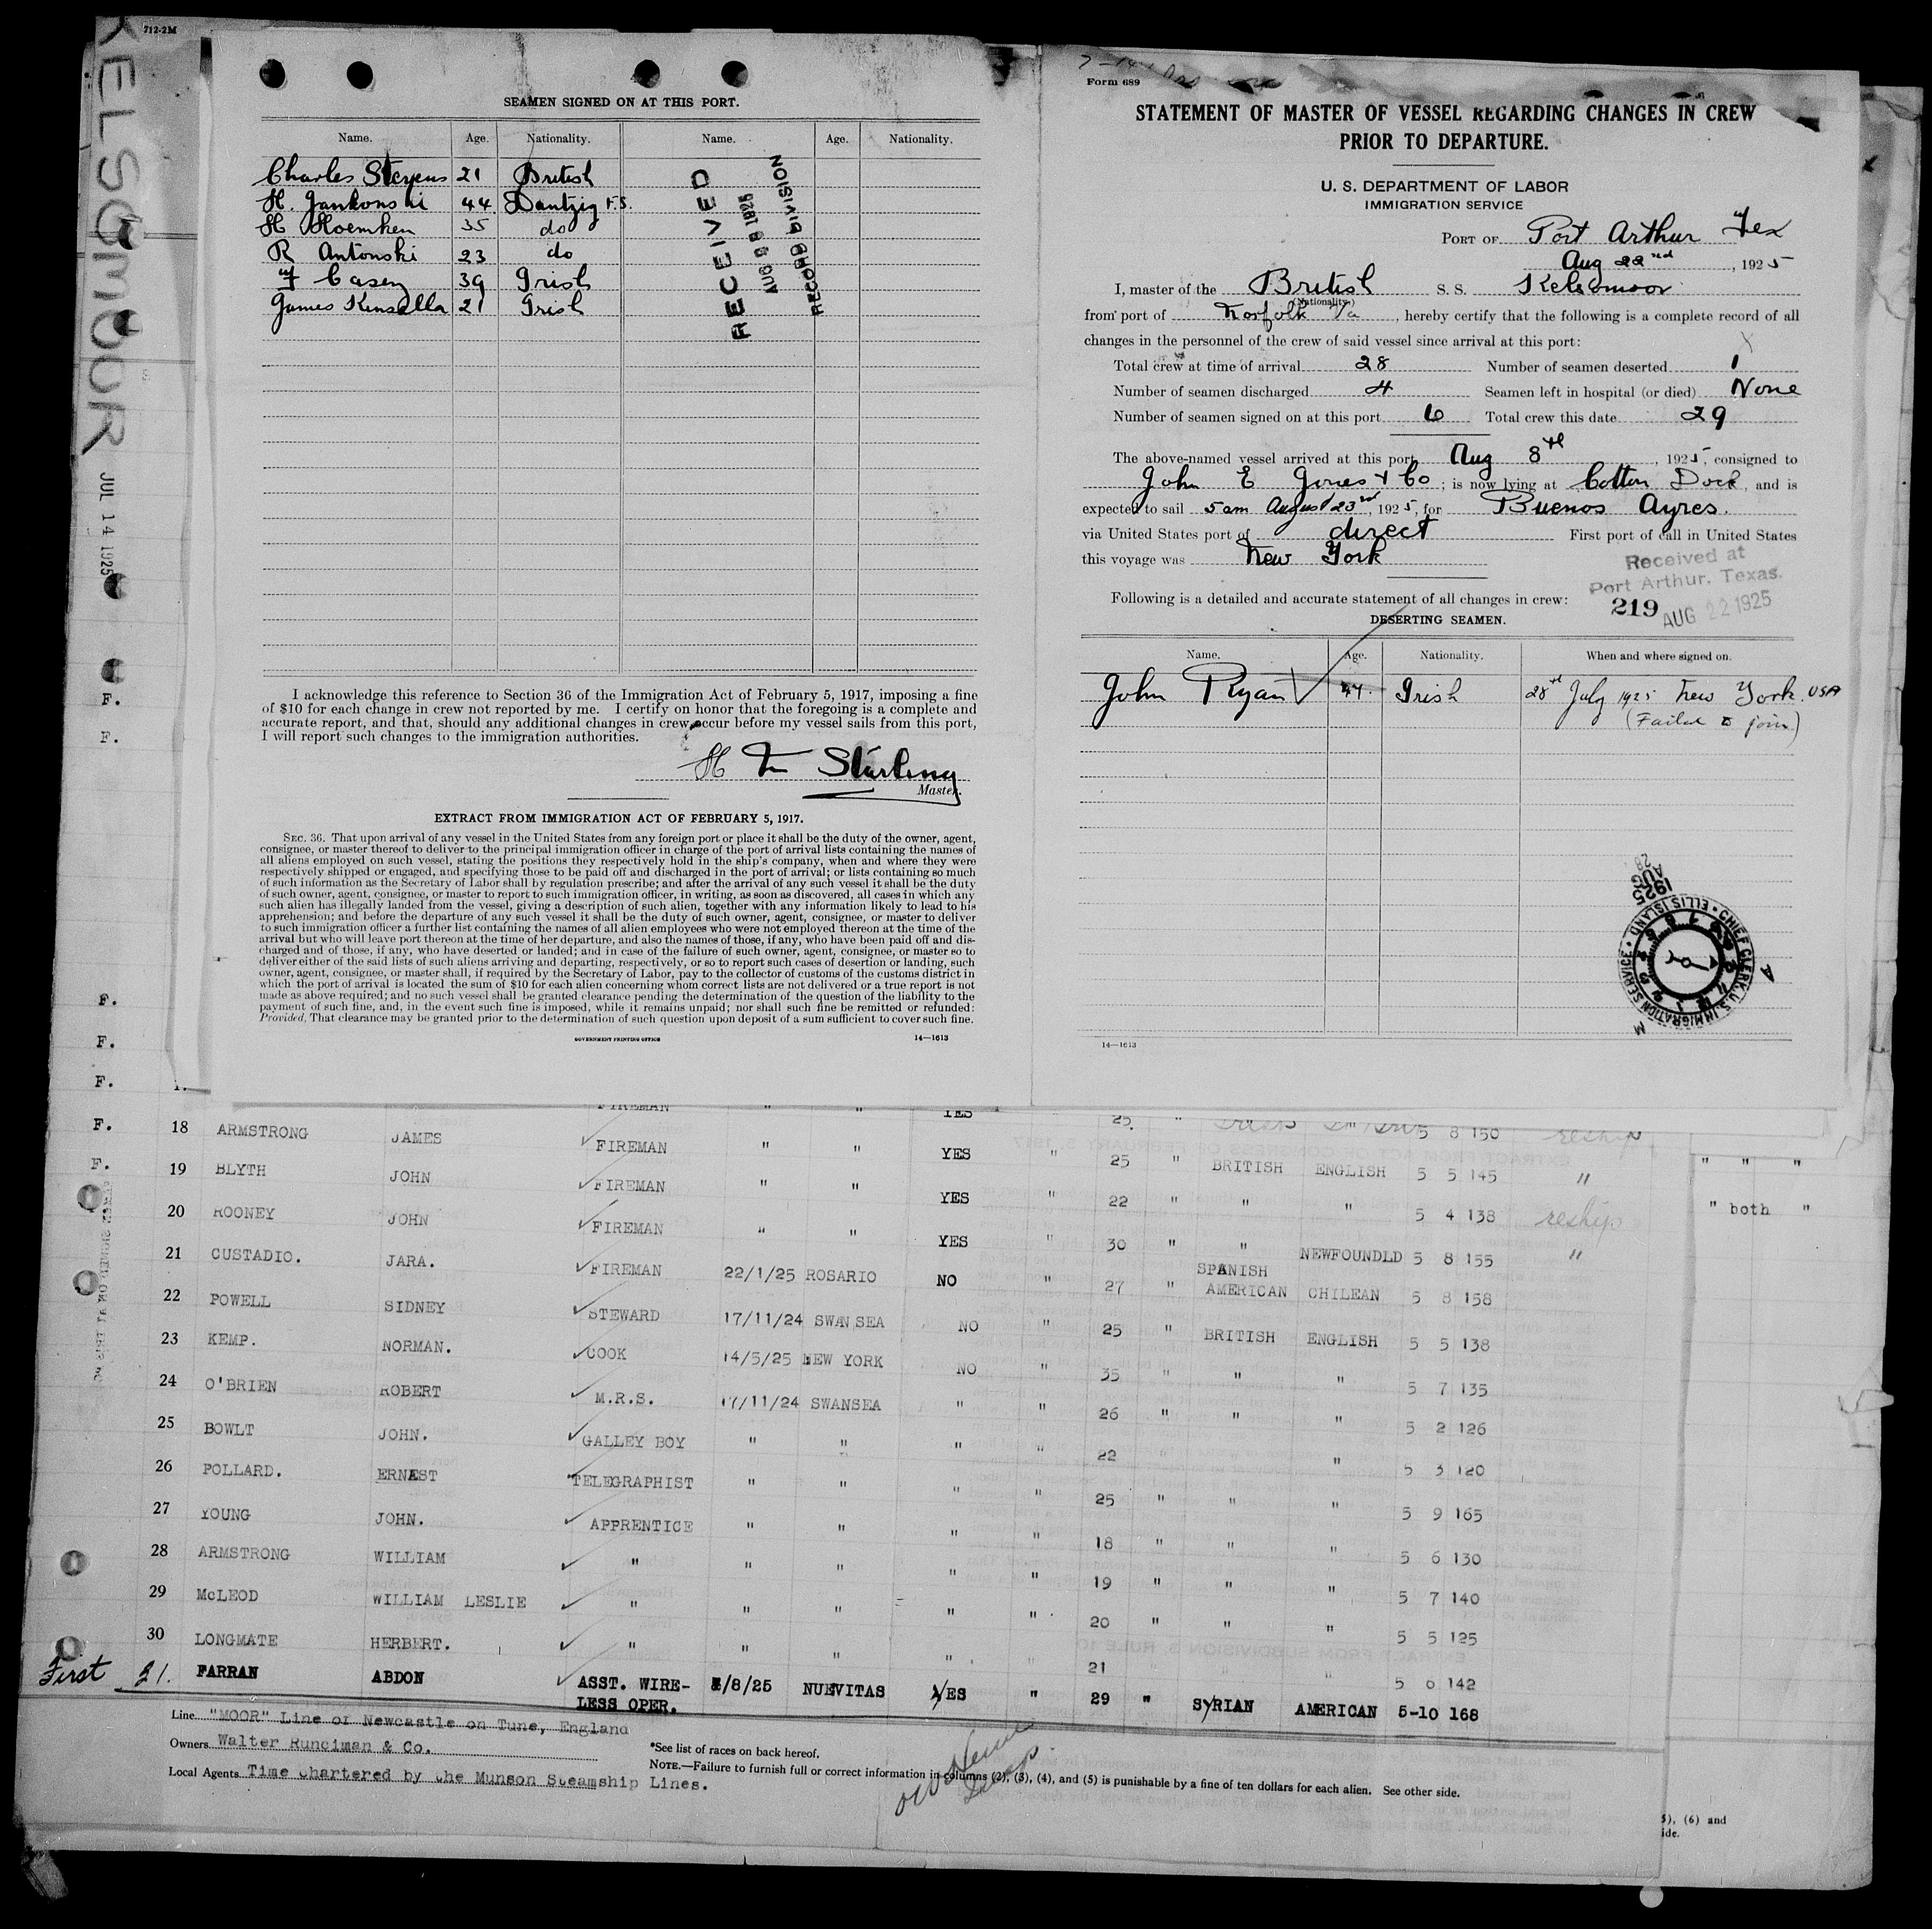 712-2M
KELSOMOOR JUL 14 1925
SEAMEN SIGNED ON AT THIS PORT.
Name. Age. Nationality. Name. Age. Nationality.
Charles Stevens 21 British
H. Jankonski 44 Dantzig F.S.
H Hoemken 35 do
R Antonski 23 do
Casey 39 Irish
James Kinsella 21 Irish
RECEIVED
AUG 28 1925
RECORD DIVISION
I acknowledge this reference to Section 36 of the Immigration Act of February 5, 1917, imposing a fine
of $10 for each change in crew not reported by me. I certify on honor that the foregoing is a complete and
accurate report, and that, should any additional changes in crew occur before my vessel sails from this port,
I will report such changes to the immigration authorities.
Master.
EXTRACT FROM IMMIGRATION ACT OF FEBRUARY 5, 1917.
SEC. 36. That upon arrival of any vessel in the United States from any foreign port or place it shall be the duty of the owner, agent,
consignee, or master thereof to deliver to the principal immigration officer in charge of the port of arrival lists containing the names of
all aliens employed on such vessel, stating the positions they respectively hold in the ship's company, when and where they were
respectively shipped or engaged, and specifying those to be paid off and discharged in the port of arrival; or lists containing so much
of such information as the Secretary of Labor shall by regulation prescribe; and after the arrival of any such vessel it shall be the duty
of such owner, agent, consignee, or master to report to such immigration officer, in writing, as soon as discovered, all cases in which any
such alien has illegally landed from the vessel, giving a description of such alien, together with any information likely to lead to his
apprehension; and before the departure of any such vessel it shall be the duty of such owner, agent, consignee, or master to deliver
to such immigration officer a further list containing the names of all alien employees who were not employed thereon at the time of the
arrival but who will leave port thereon at the time of her departure, and also the names of those, if any, who have been paid off and dis-
charged and of those, if any, who have deserted or landed; and in case of the failure of such owner, agent, consignee, or master so to
deliver either of the said lists of such aliens arriving and departing, respectively, or so to report such cases of desertion or landing, such
owner, agent, consignee, or master shall, if required by the Secretary of Labor, pay to the collector of customs of the customs district in
which the port of arrival is located the sum of $10 for each alien concerning whom correct lists are not delivered or a true report is not
made as above required; and no such vessel shall be granted clearance pending the determination of the question of the liability to the
payment of such fine, and, in the event such fine is imposed, while it remains unpaid; nor shall such fine be remitted or refunded:
Provided, That clearance may be granted prior to the determination of such question upon deposit of a sum sufficient to cover such fine.
GOVERNMENT PRINTING OFFICE 14—1613
Form 689
STATEMENT OF MASTER OF VESSEL REGARDING CHANGES IN CREW
PRIOR TO DEPARTURE.
U. S. DEPARTMENT OF LABOR
IMMIGRATION SERVICE
PORT OF Port Arthur Tex
Aug 22nd, 1925
I, master of the British S. S. Kelsomoor
(Nationality.)
from port of Norfolk Va, hereby certify that the following is a complete record of all
changes in the personnel of the crew of said vessel since arrival at this port:
Total crew at time of arrival 28 Number of seamen deserted 1
Number of seamen discharged 4 Seamen left in hospital (or died) None
Number of seamen signed on at this port 6 Total crew this date 29
The above-named vessel arrived at this port Aug 8th, 1925, consigned to
John E Jones & Co; is now lying at Cotton Dock, and is
expected to sail 5am August 23rd, 1925, for Buenos Ayres.
via United States port of direct First port of call in United States
this voyage was New York
Received at
Port Arthur, Texas.
219 AUG 22 1925
Following is a detailed and accurate statement of all changes in crew:
DESERTING SEAMEN.
Name. Age. Nationality. When and where signed on.
John Ryan 47. Irish 28th July 1925 New York. USA
(Failed to join)
1925 AUG 28
CHIEF CLERK, U.S. IMMIGRATION SERVICE • ELLIS ISLAND •
14—1613
F.
F.
F.
F.
F.
F.
F.
FIREMAN " " YES 25 "
18 ARMSTRONG JAMES FIREMAN " " YES " 25 " 5 8 150 reship
19 BLYTH JOHN FIREMAN " " YES " 22 " BRITISH ENGLISH 5 5 145 "
20 ROONEY JOHN FIREMAN " " YES " 30 " " " 5 4 138 reship
21 CUSTADIO. JARA. FIREMAN 22/1/25 ROSARIO NO " 27 " " NEWFOUNDLD 5 8 155 "
22 POWELL SIDNEY STEWARD 17/11/24 SWANSEA NO " 25 " SPANISH AMERICAN CHILEAN 5 8 158
23 KEMP. NORMAN. COOK 14/5/25 NEW YORK NO " 35 " BRITISH ENGLISH 5 5 138
24 O'BRIEN ROBERT M.R.S. 17/11/24 SWANSEA " " 26 " " " 5 7 135
25 BOWLT JOHN. GALLEY BOY " " " " 22 " " 5 2 126
26 POLLARD. ERNEST TELEGRAPHIST " " " " 25 " " " 5 3 120
27 YOUNG JOHN. APPRENTICE " " " " 18 " " " 5 9 165
28 ARMSTRONG WILLIAM " " " " " 19 " " " 5 6 130
29 McLEOD WILLIAM LESLIE " " " " " 20 " " " 5 7 140
30 LONGMATE HERBERT. " " " " " 21 " " " 5 5 125
5 6 142
First 31. FARRAN ABDON ASST. WIRE- 8/25 NUEVITAS YES " 29 " SYRIAN AMERICAN 5-10 168
LESS OPER.
" " "
" both "
Line "MOOR" Line of Newcastle on Tune, England
Owners Walter Runciman & Co.
Local Agents Time chartered by the Munson Steamship Lines.
*See list of races on back hereof.
NOTE.—Failure to furnish full or correct information in columns (2), (3), (4), and (5) is punishable by a fine of ten dollars for each alien. See other side.
5), (6) and
ide.